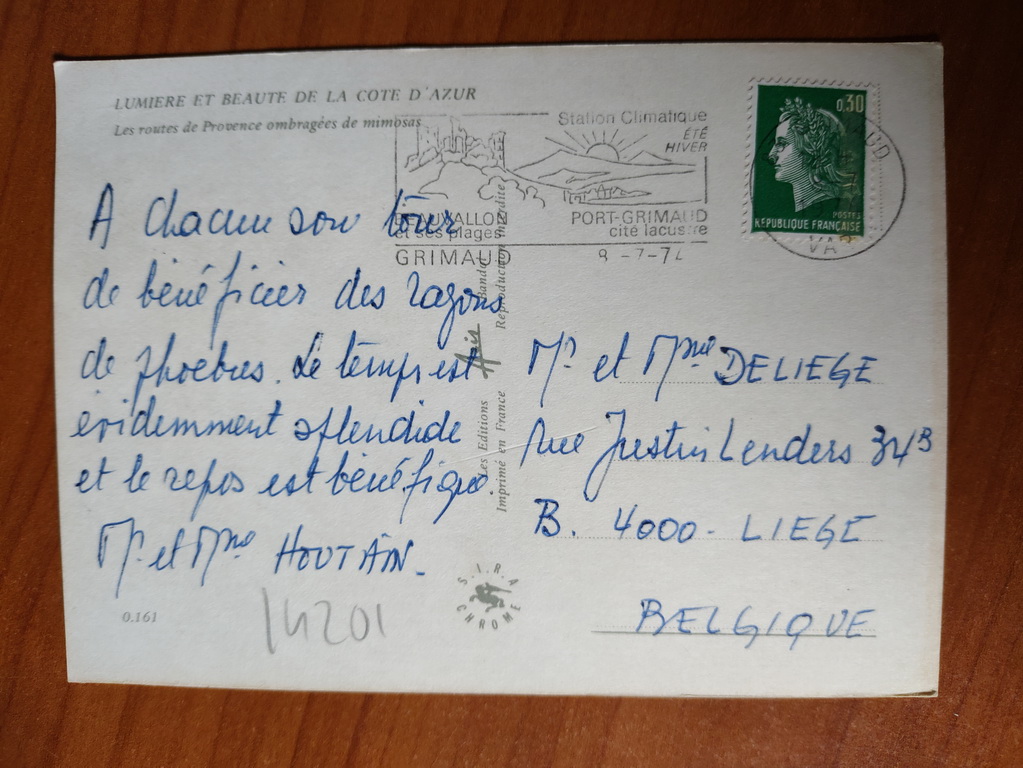 LUMIERE ET BEAUTE DE LA COTE D'AZUR
Les routes de Provence ombragées de mimosas
Station Climatique
ÉTÉ
HIVER
BEAUVALLON
et ses plages
GRIMAUD
PORT-GRIMAUD
cité lacustre
9-7-74
0,30
POSTES
RÉPUBLIQUE FRANÇAISE
VAR
A chacun son tour
de bénéficier des rayons
de phoebus. Le temps est
évidemment splendide
et le repos est bénéfique.
Mr et Mme HOUTAIN.
Les Editions Aris Bandol
Imprimé en France Reproduction interdite
Mr et Mme DELIEGE
rue Justin Lenders 34B
B. 4000 - LIEGE
BELGIQUE
S.I.R.A.
CHROME
0.161
14201